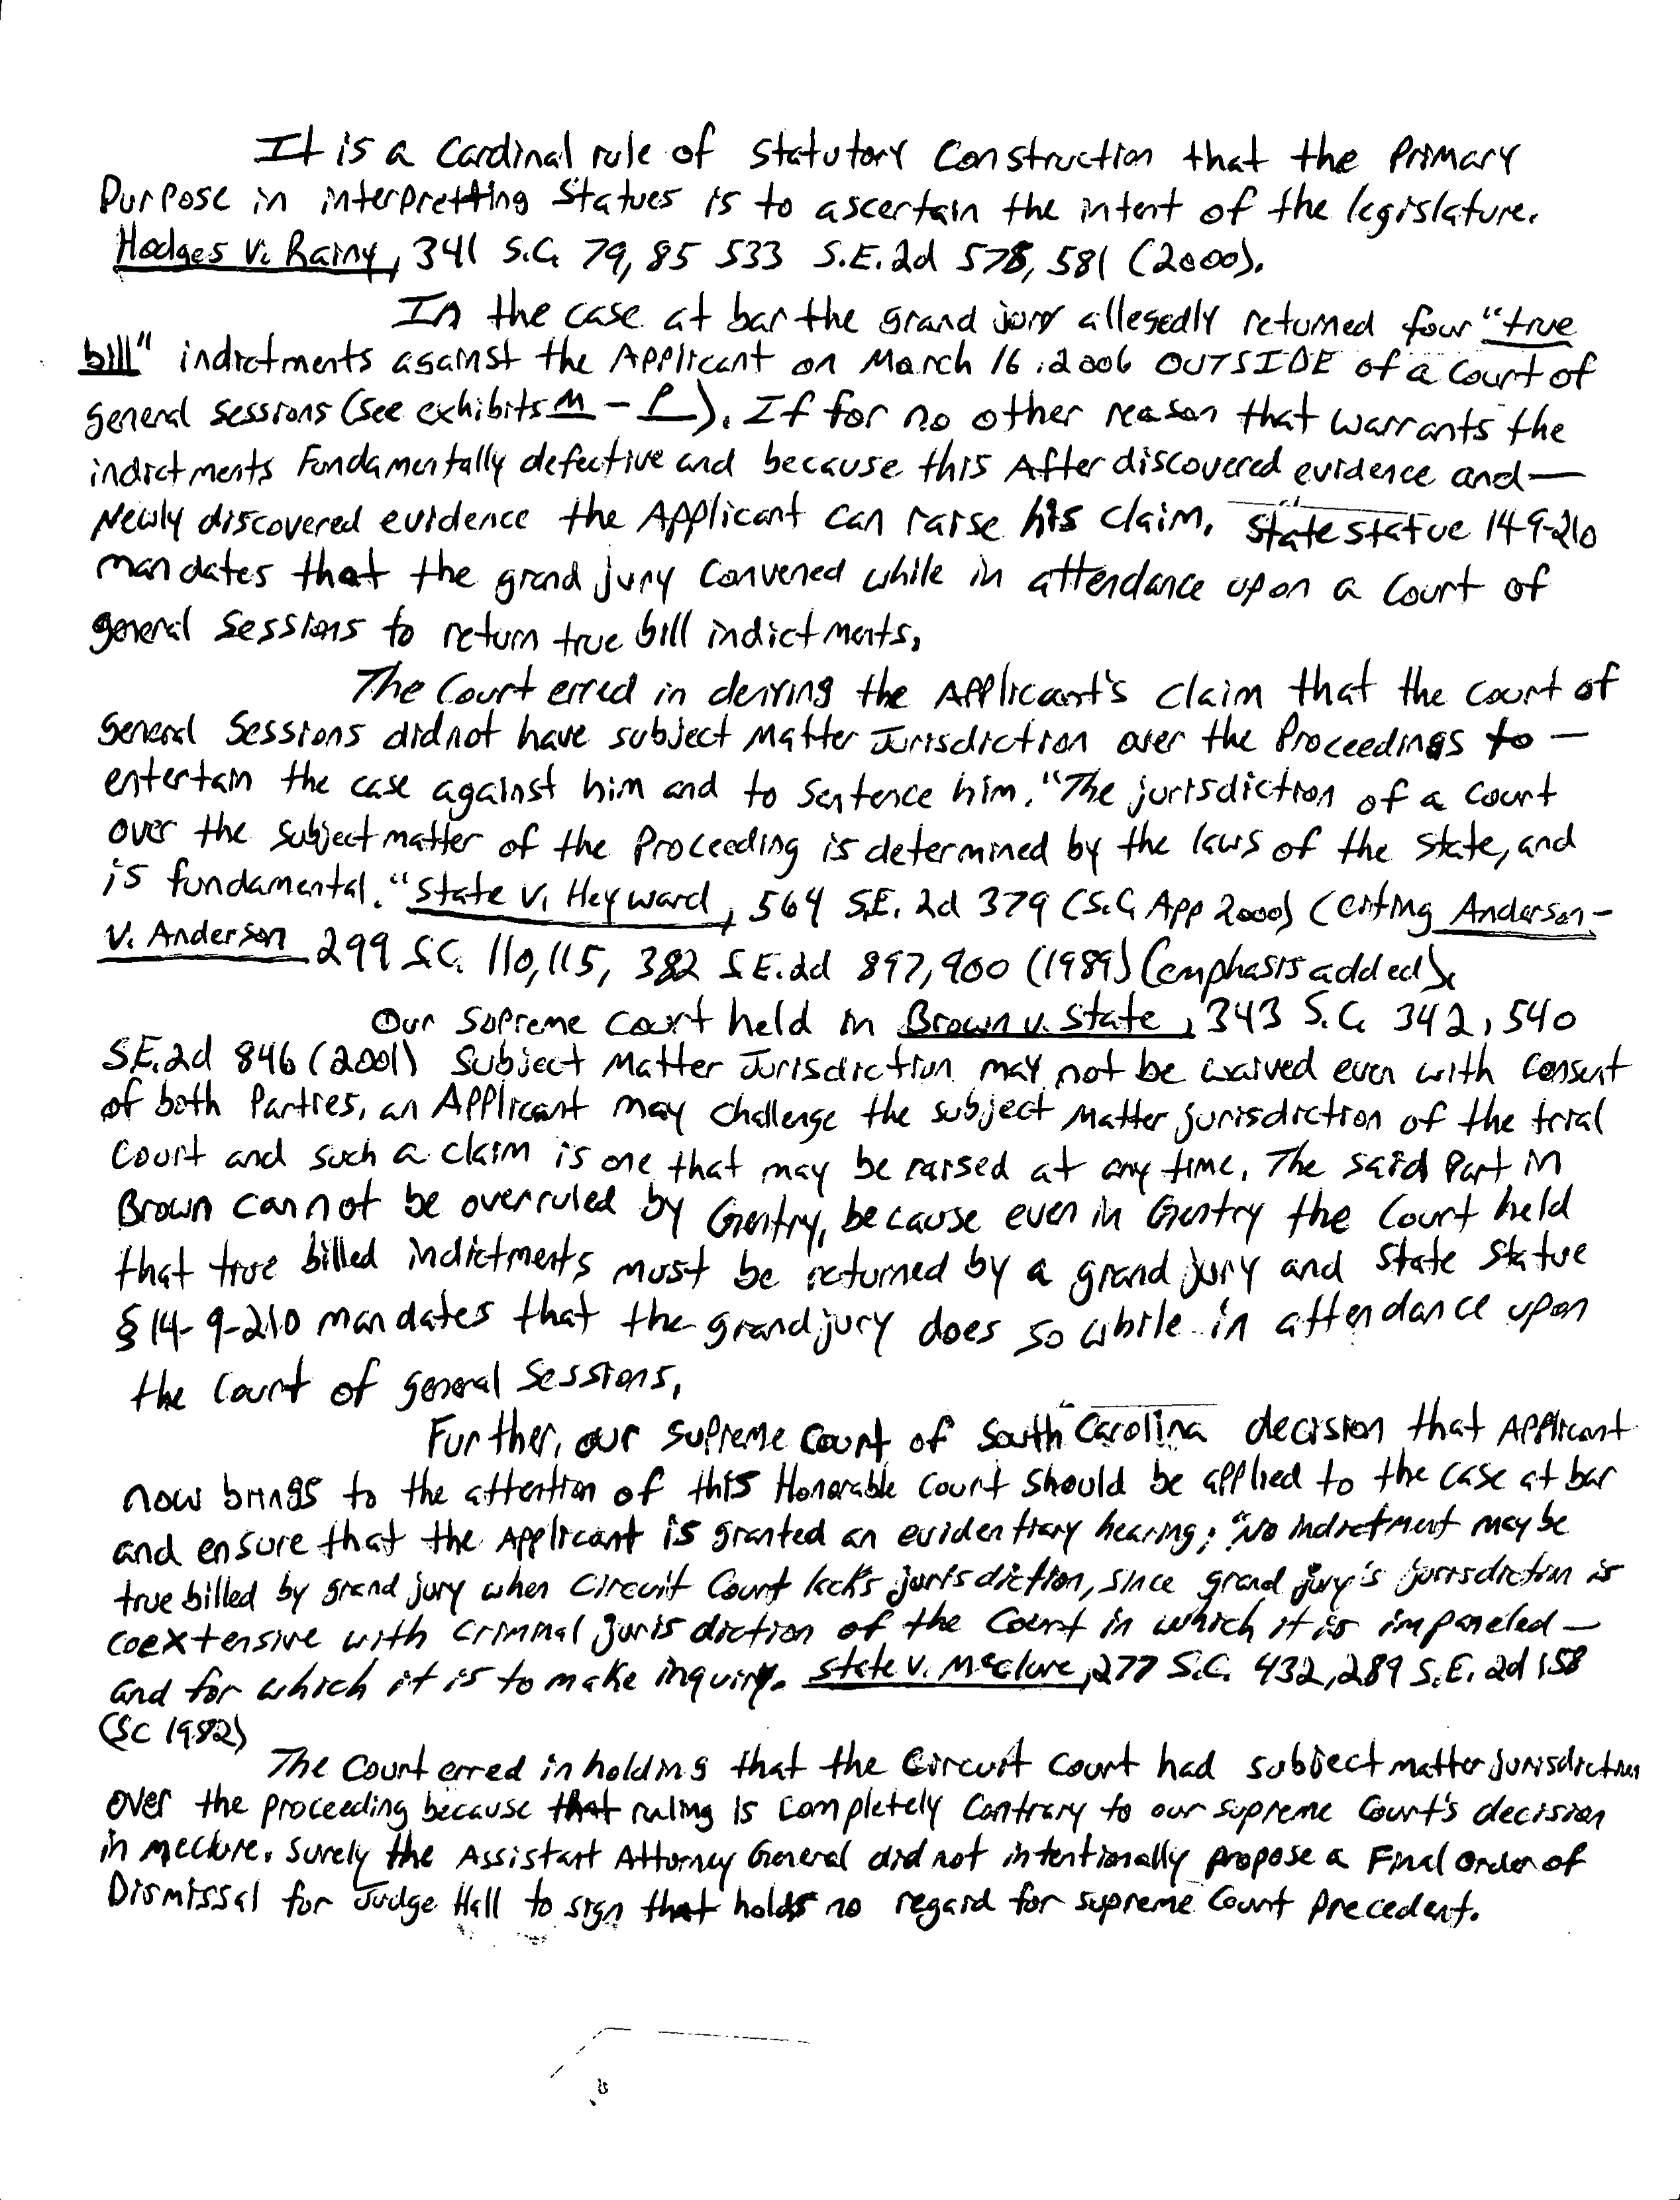 It is a Cardinal rule of Statutory Construction that the Primary
Purpose in interpretting Statues is to ascertain the intent of the legislature.
Hodges V. Rainy, 341 S.C. 79, 85 533 S.E.2d 578, 581 (2000).
In the case at bar the grand jory allegedly returned four "true
bill" indictments against the Applicant on March 16, 2006 OUTSIDE of a Court of
general sessions (see exhibits M - P). If for no other reason that warrants the
indictments Fundamentally defective and because this After discovered evidence and—
Newly discovered evidence the Applicant can raise his claim. State statue 14-9-210
mandates that the grand jury Convened while in attendance upon a Court of
general Sessions to return true bill indictments.
The Court erred in denying the Applicant's claim that the court of
General Sessions did not have subject Matter Jurisdiction over the Proceedings to —
entertain the case against him and to Sentence him. "The jurisdiction of a Court
over the subject matter of the Proceeding is determined by the laws of the State, and
is fundamental." State V. Heyward, 564 S.E. 2d 379 (S.C. App 2000) (citing Anderson-
V. Anderson 299 S.C. 110, 115, 382 S.E.2d 897, 900 (1989) (emphasis added).
Our Supreme Court held in Brown v. State, 343 S.C. 342, 540
S.E.2d 846 (2001) Subject Matter Jurisdiction may not be waived even with Consent
of both Parties, an Applicant may challenge the subject Matter jurisdiction of the trial
Court and such a claim is one that may be raised at any time. The said Part in
Brown cannot be overruled by Gentry, because even in Gentry the Court held
that true billed indictments must be returned by a grand jury and State Statue
§ 14-9-210 mandates that the grand jury does so while in attendance upon
the Court of general Sessions.
Further, our Supreme Court of South Carolina decision that Applicant
now brings to the attention of this Honorable Court should be applied to the case at bar
and ensure that the Applicant is granted an evidentiary hearing; "No indictment may be
true billed by grand jury when Circuit Court lacks jurisdiction, since grand jury's jurisdiction is
coextensive with criminal jurisdiction of the Court in which it is impaneled —
and for which it is to make inquiry. State v. McClure, 277 S.C. 432, 289 S.E. 2d 158
(SC 1982)
The Court erred in holding that the Circuit Court had subject matter jurisdiction
over the proceeding because that ruling is completely Contrary to our supreme Court's decision
in mcclure. Surely the Assistant Attorney General did not intentionally propose a Final Order of
Dismissal for Judge Hall to sign that holds no regard for supreme Court Precedent.